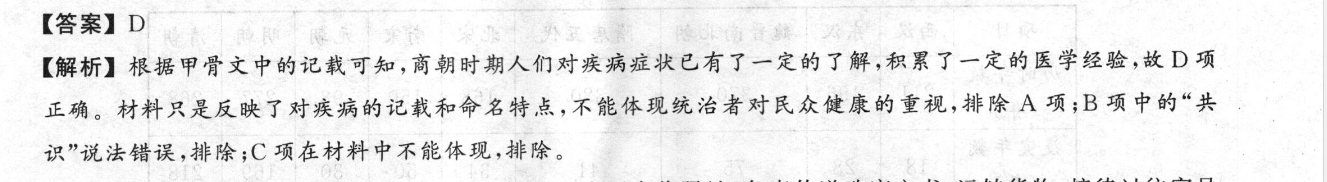 【答案】D
【解析】根据甲骨文中的记载可知,商朝时期人们对疾病症状已有了一定的了解,积累了一定的医学经验,故 D 项
正确。材料只是反映了对疾病的记载和命名特点,不能体现统治者对民众健康的重视,排除 A 项;B 项中的“共
识”说法错误,排除;C 项在材料中不能体现,排除。